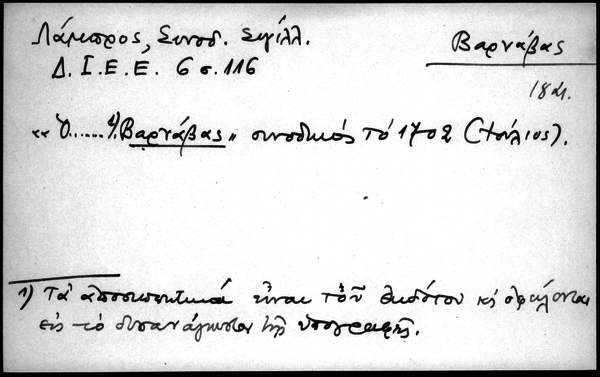 Λάμπρος, Συνοδ. Σιγίλλ.
Δ. Ι. Ε. Ε. 6 σ. 116
Βαρνάβας
18 αι.
«Ὁ......¹⁾ Βαρνάβας» συνοδικός τό 1702 (Ἰούλιος).
1) Τά ἀποσιωπητικά εἶναι τοῦ ἐκδότου κ̀ ὀφείλονται
εἰς τό δυσανάγνωστον τῆς ὑπογραφῆς.